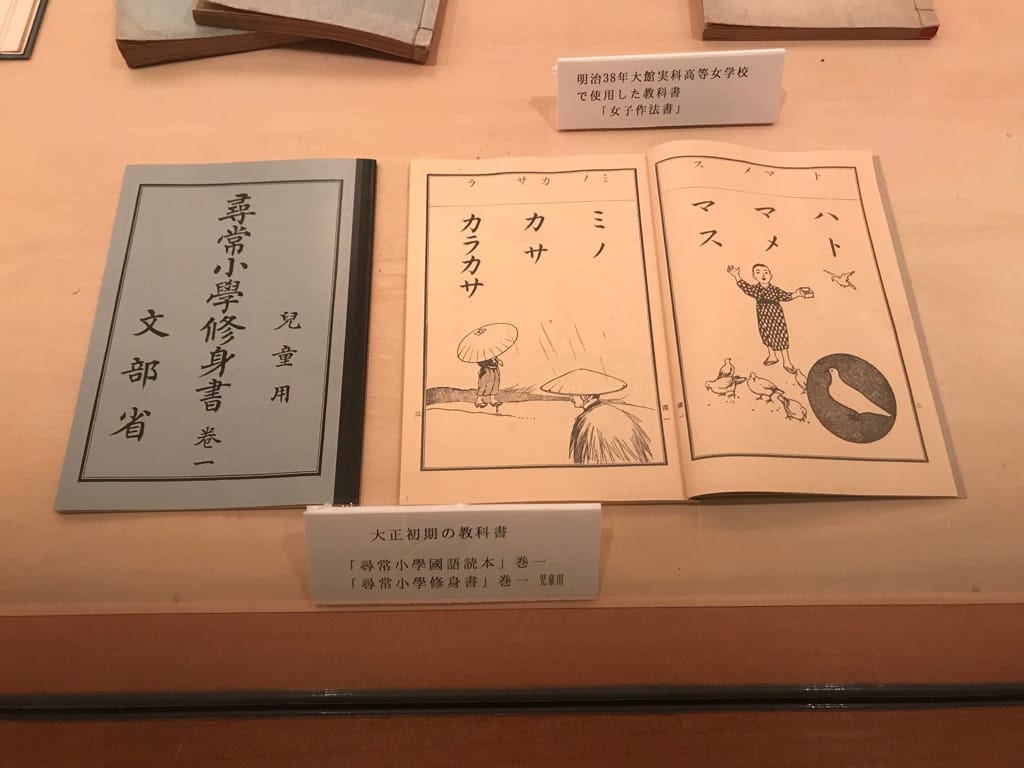 明治38年大館実科高等女学校
で使用した教科書
「女子作法書」
兒童用
尋常小學修身書 巻一
文部省
ト マメ ス
ハト
マメ
マス
ミノ カサ ラ
ミノ
カサ
カラカサ
大正初期の教科書
「尋常小學國語読本」巻一
「尋常小學修身書」巻一 児童用